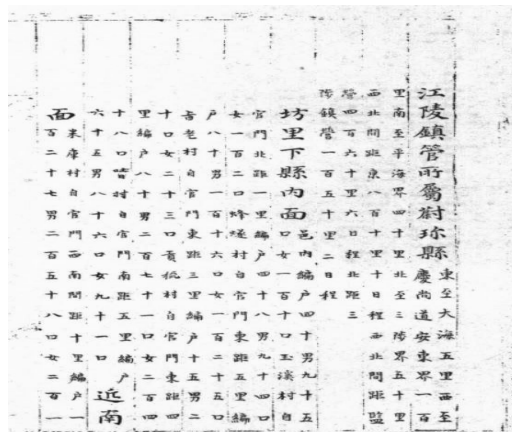 江陵鎮管所屬蔚珍縣
東至大海五里西至
慶尚道安東界一百
里南至平海界四十里北至三陟界五十里
西北間距京八百十里十日程西北間距監
營四百六十里六日程北距三
陟鎮營一百五十里二日程
坊里下縣內面
邑內編戶四十男九十五
口女一百十口玉溪村自
官門北距一里編戶四十八男九十四口
女一百二口烽燧村自官門東距五里編
戶八十男一百十六口女一百二十五口
老村自官門東距三里編戶十五男二
十口女二十三口貢稅村自官門東距四
里編戶八十男二百七十一口女二百四
十八口村自官門南距五里編戶
六十五男八十六口女九十一口
近南
面
村自官門西南間距十里編戶一
百二十七男二百五十八口女二百一